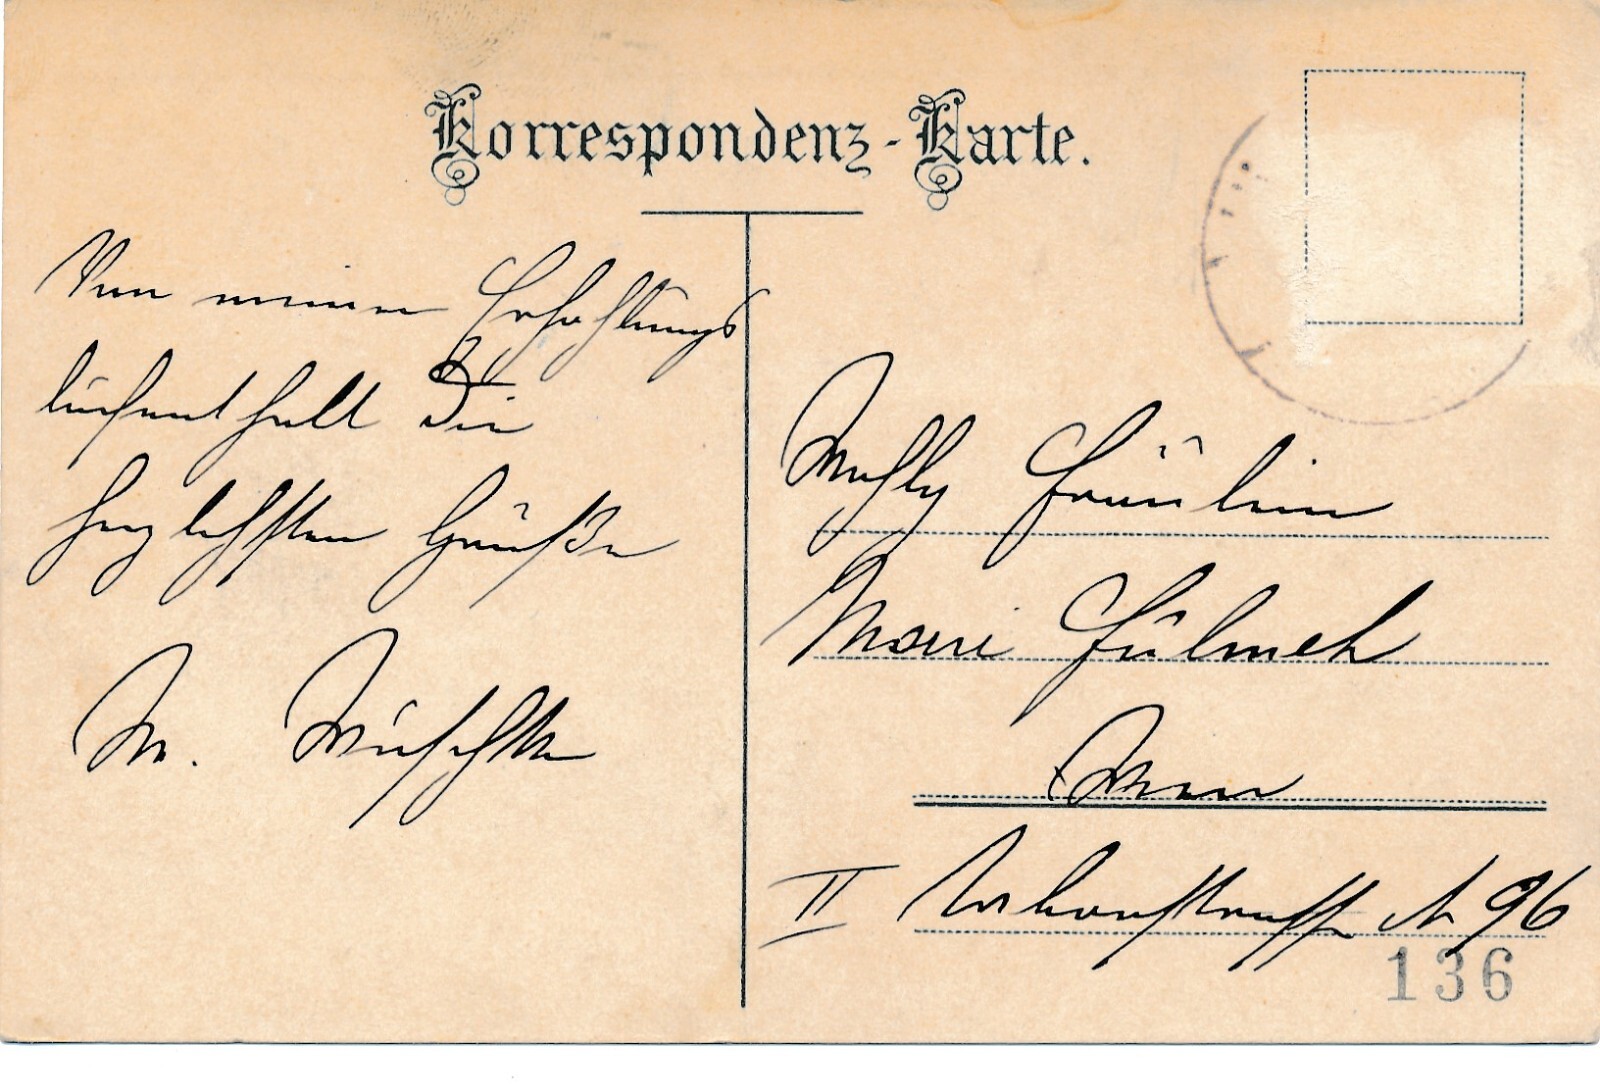 Korrespondenz-Karte.
Von meinem Erholungs
aufenthalt die
herzlichsten Grüße
M.
Wohlg. Fräulein
Marie
Wien
II
No 96
136